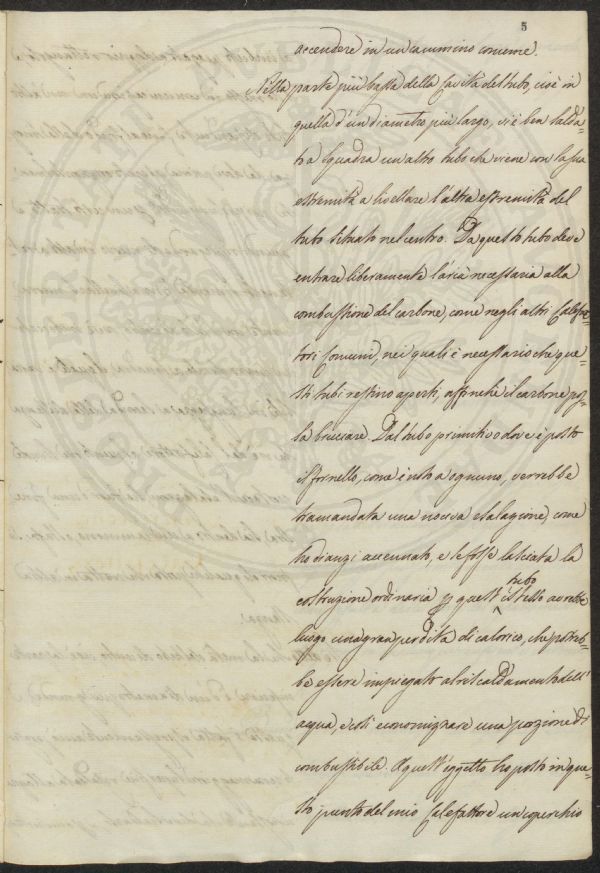 5
ascendere in un cammino comune.
Nella parte più bassa della cavità del tubo, cioè in
quella d'un diametro più largo, vi è ben salda-
to a squadra un altro tubo che viene con la sua
estremità a livellare l'altra estremità del
tubo situato nel centro. Da questo tubo deve
entrare liberamente l'aria necessaria alla
combustione del carbone, come negli altri Calefat-
tori Comuni, nei quali è necessario che que-
sti tubi restino aperti, affinché il carbone pos-
sa bruciare. Dal tubo primitivo dov'è posto
il fornello, come è noto a ognuno, verrebbe
tramandata una nociva esalazione, come
ho dianzi accennato, e se fosse lasciata la
costruzione ordinaria p quest' istesso tubo avrebbe
luogo una gran perdita di calorico, che potreb-
be essere impiegato al riscaldamento dell'
acqua, e così economizzare una porzione di
combustibile. A quest'oggetto ho posto in que-
sto punto del mio Calefattore un coperchio